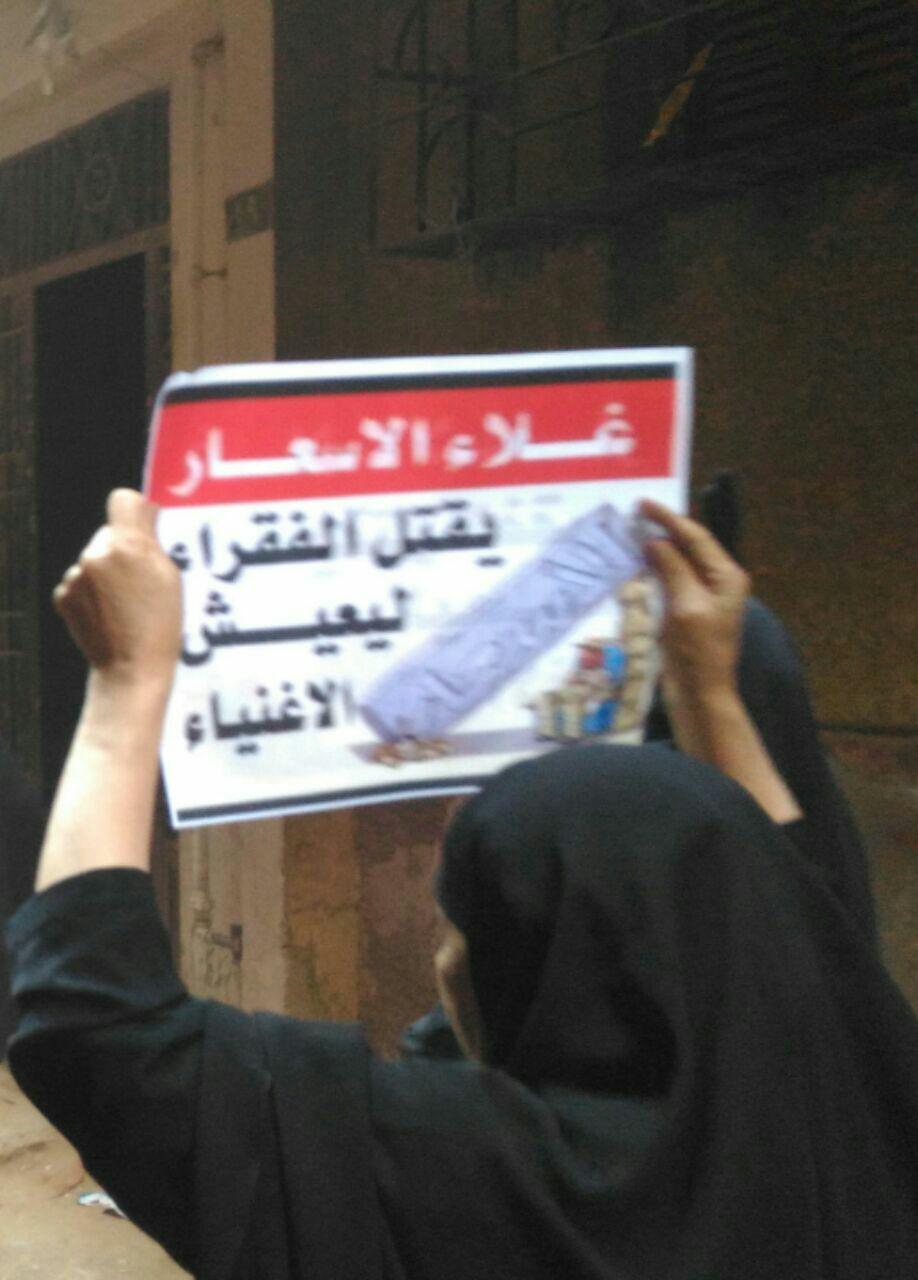 غلاء الاسعار
يقتل الفقراء
ليعيش
الاغنياء